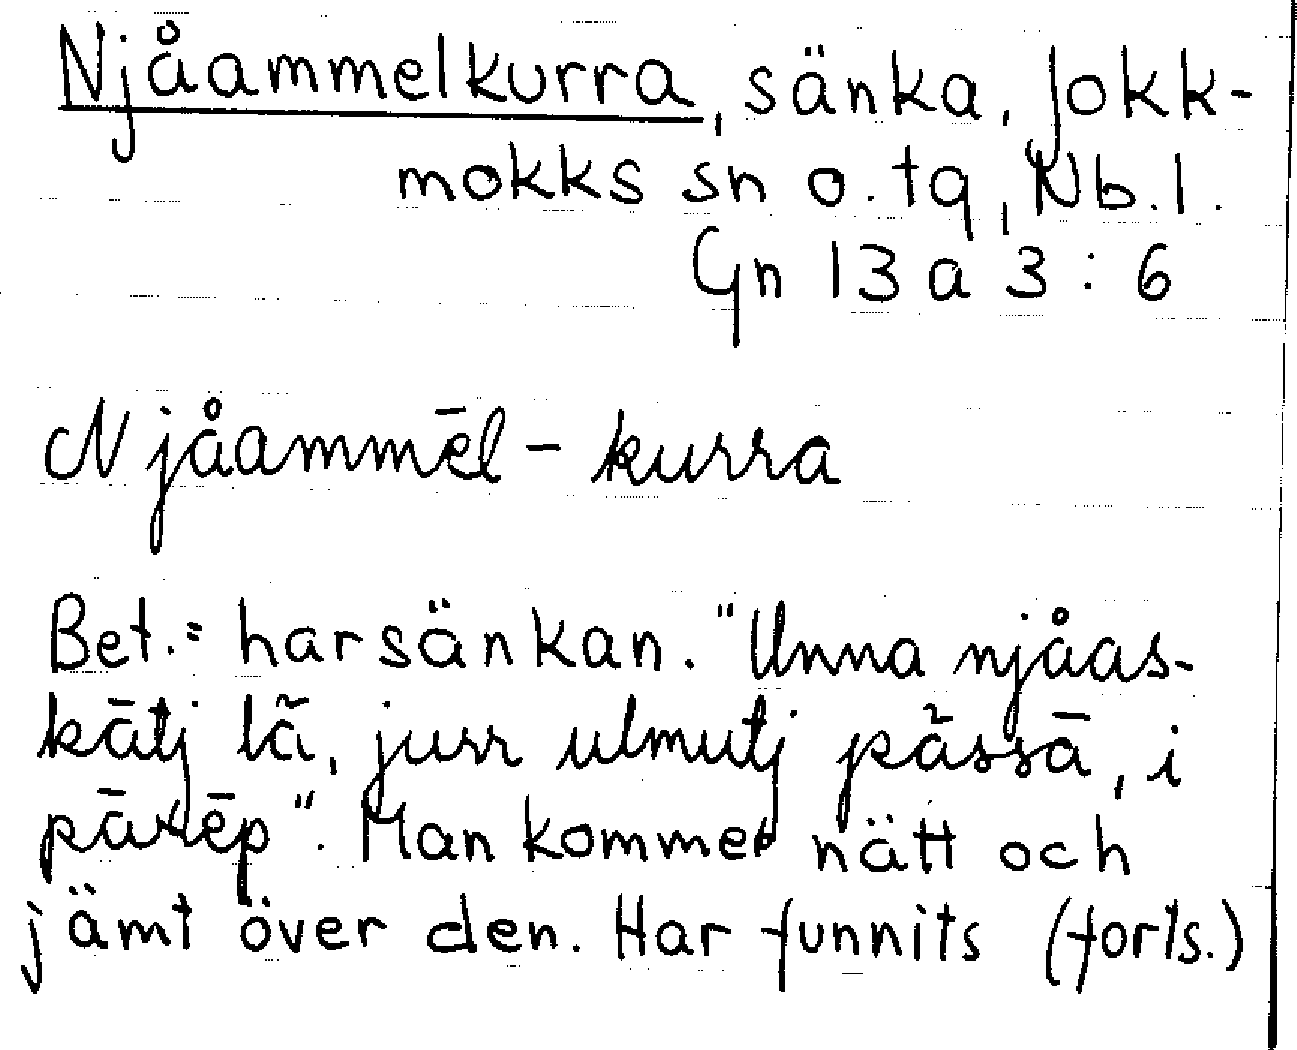 Njåammelkurra, sänka, Jokk-
mokks sn o. tg, Nb.l.
Gn 13 a 3 : 6
Njåammēl - kurra
Bet.: harsänkan. "Unna njåas-
kātj lä̃, jurr ulmutj pā̆ssā, i
pārēp". Man kommer nätt och
jämt över den. Har funnits (forts.)